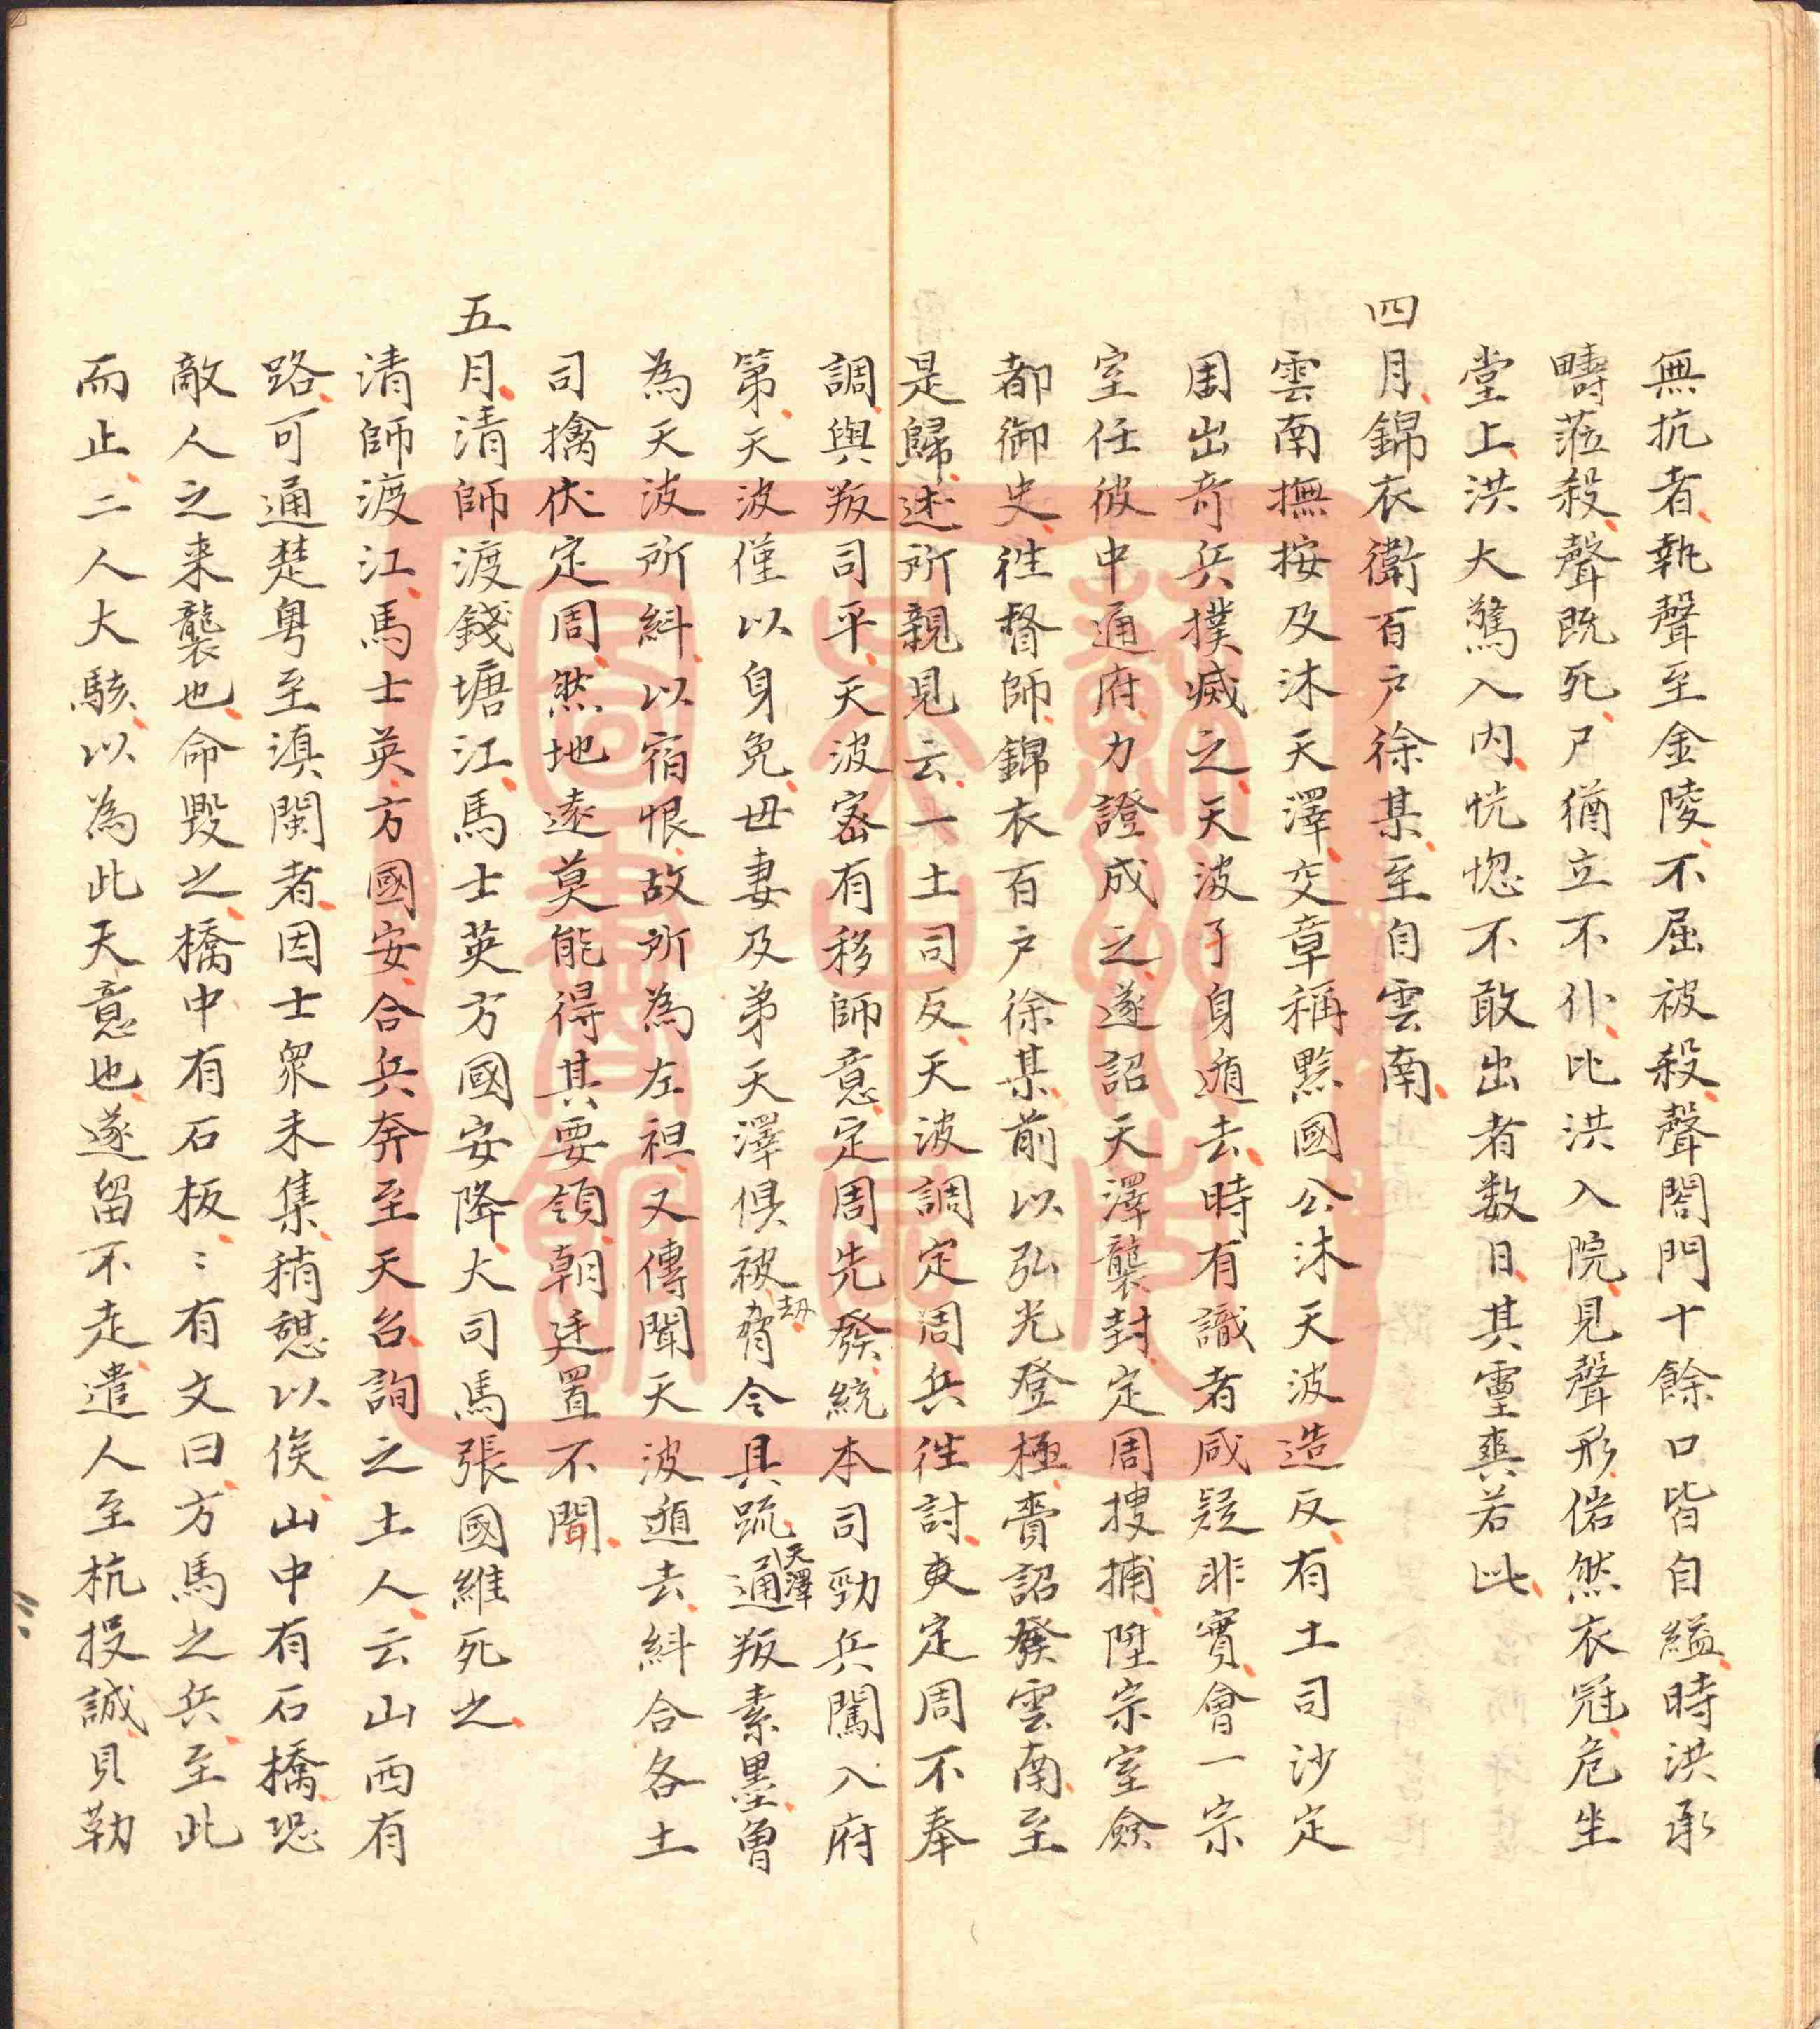 無抗者執聲至金陵不屈被殺聲閤門十餘口皆自縊時洪承
疇蒞殺聲既死尸猶立不仆比洪入院見聲形偌然衣冠危坐
堂上洪大驚入内恍惚不敢出者数日其靈爽若此
四月錦衣衛百户徐某至自雲南
雲南撫按及沐天澤交章稱黔國公沐天波造反有土司沙定
周出奇兵撲滅之天波孑身遁去時有識者咸疑非實會一宗
室任彼中通府力證成之遂詔天澤襲封定周搜捕陞宗室僉
都御史徃督師錦衣百户徐某前以弘光登極賫詔發雲南至
是歸述所親見云一土司反天波調定周兵徃討叓定周不奉
調與叛司平天波宻有移師意定周先發統本司勁兵闖入府
第天波僅以身免毋妻及弟天澤俱被脅劫令具䟽通天澤叛素墨曽
為天波所糾以宿恨故所為左袒又傳聞天波遁去糾合各土
司擒伏定周然地逺莫能得其要領朝廷置不問
五月清師渡錢塘江馬士英方國安降大司馬張國維死之
清師渡江馬士英方國安合兵奔至天台詢之土人云山西有
路可通楚粤至滇閩者因士衆未集稍憇以俟山中有石橋恐
敵人之来襲也命毀之橋中有石板〻有文曰方馬之兵至此
而止二人大駭以為此天意也遂留不走遣人至杭投誠貝勒